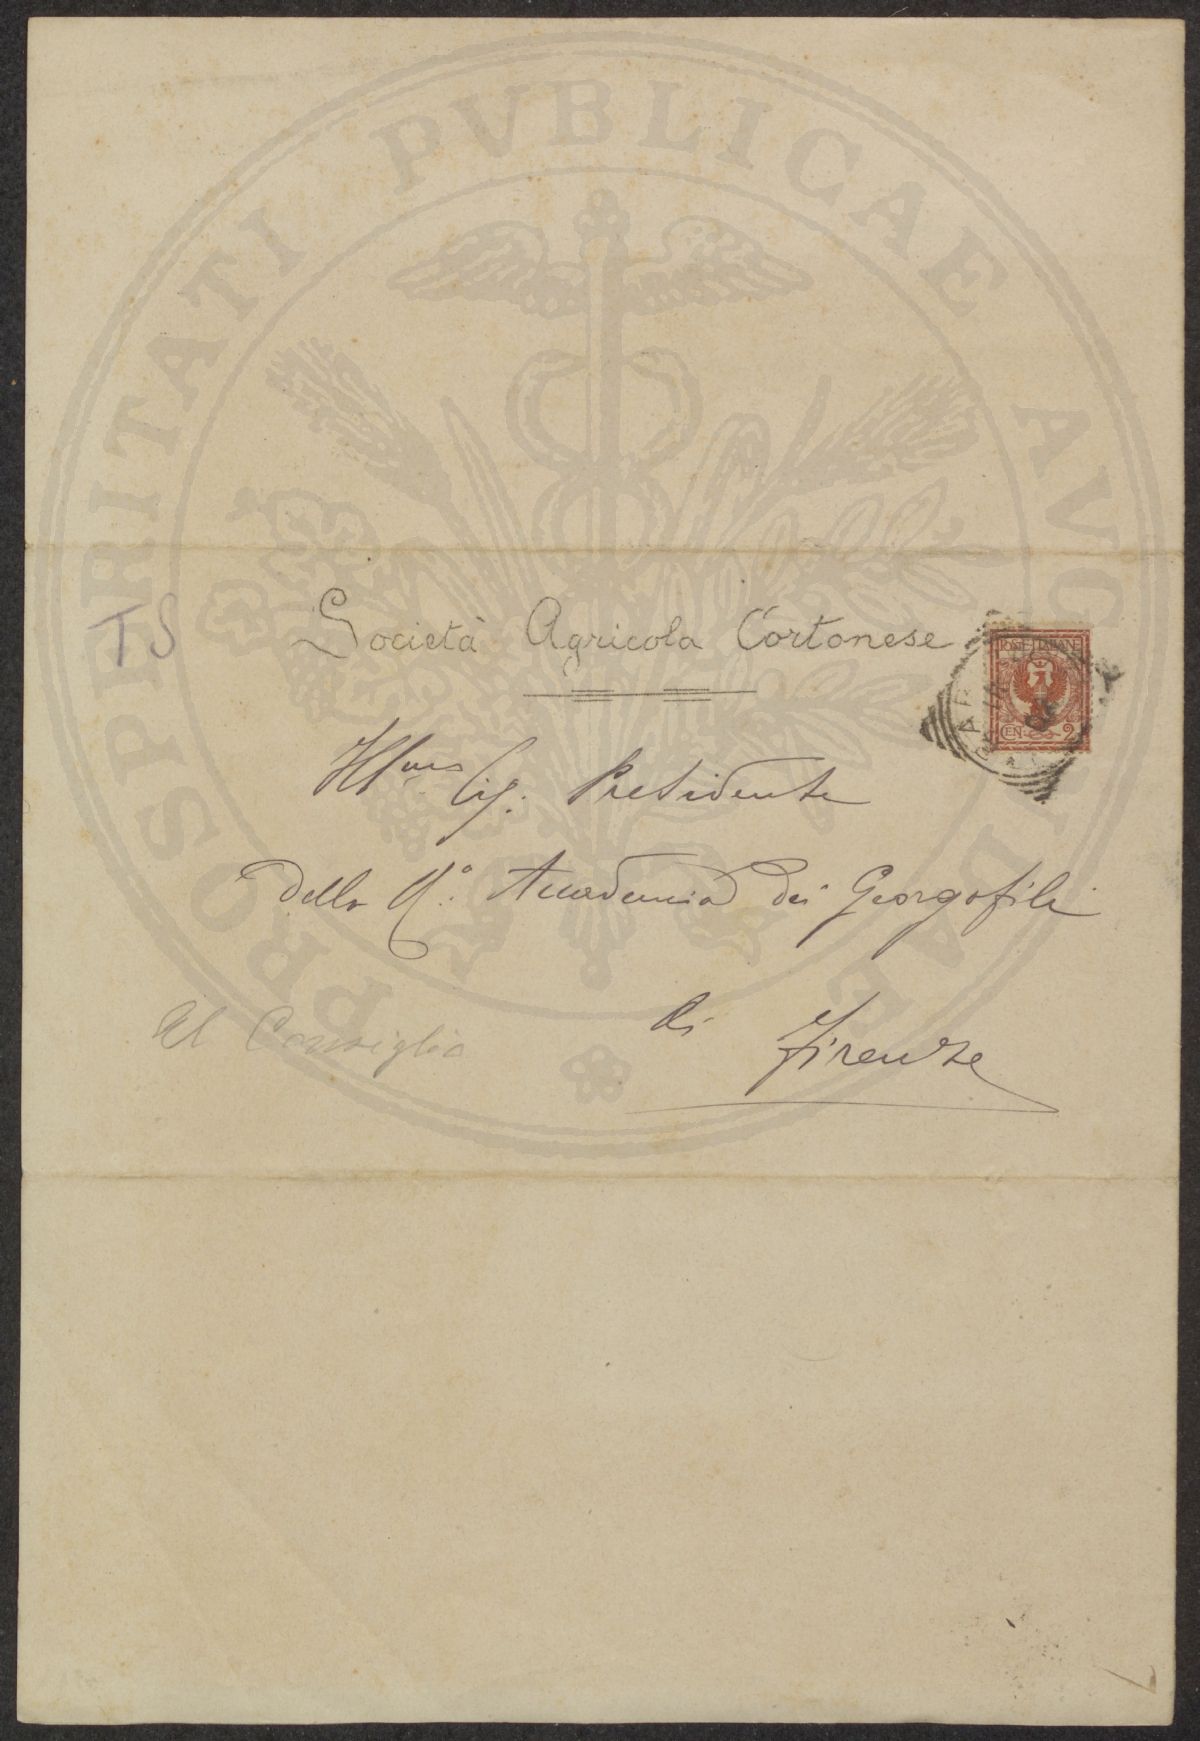 PROSPERITATI PVBLICAE AVGENDAE
TS
Società Agricola Cortonese
POSTE ITALIANE
CEN 2
Illmo Sig. Presidente
della R.a Accademia dei Georgofili
Al Consiglio
di
Firenze